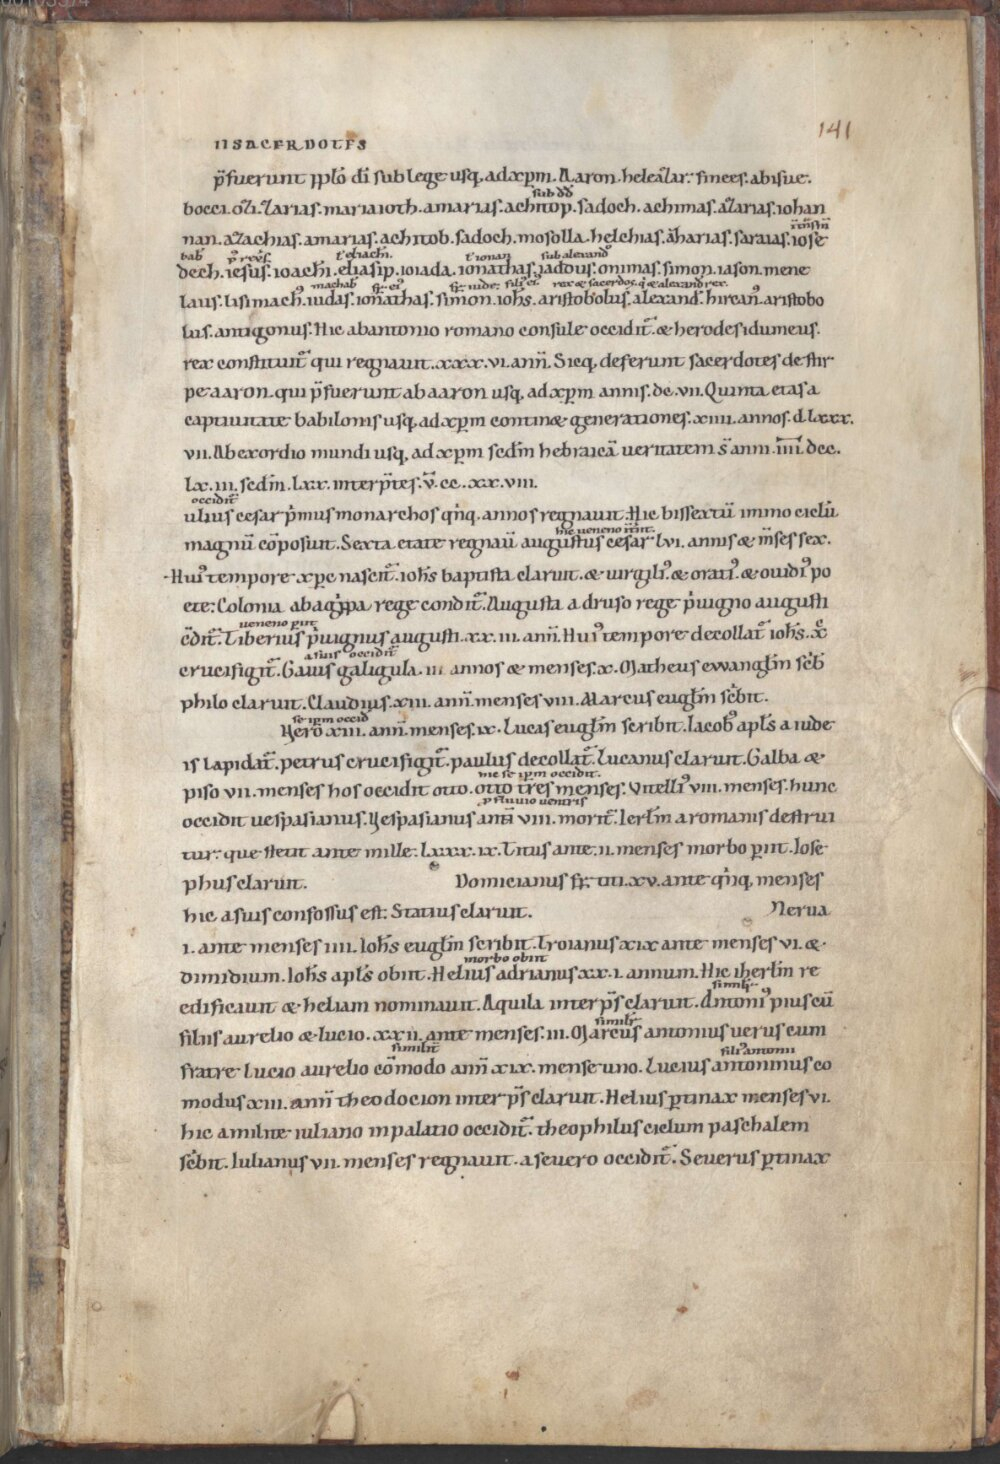 141
IISACERDOTES
p̄fuerunt pplō dī sub lege usq, ad xp̄m. Aaron. heleaȥar. finees. abisue.
sub dd̄
bocci. oȥi. ȥarias. maraioth. amarias. achitop. sadoch. achimas. aȥarias. iohan
nan. aȥachias. amarias. achitob. sadoch. mosolla. helchias. aharias. saraias. iose
bab t' eliachī. t' ionan sub alexand
dech. iesus. ioachī. eliasip. ioiada. ionathas. jaddus. onimas. simon. iason. mene
machab fr̄ ei' fr̄ iude. filī' ei' rex & sacerdos. q & alexand rex.
laus. lisimach' iudas. ionathas. simon. iohs. aristobolus. alexand. hircan'. aristobo
lus. antigonus. Hic abantonio romano consule occidit̄. & herodes idumeus.
rex constituit̄ qui regnauit. xxx. vi. ann̄. Sicq, deferunt sacerdotes de stir
pe aaron. qui p̄fuerunt ab aaron usq, ad xp̄m annis. dc. vii. Quinta etas a
captiuitate babilonis usq, ad xp̄m contin& generationes. xiiii. annos. d lxxx.
vii. Ab exordio mundi usq, ad xp̄m sedm̄ hebraicā ueritatem s̄ anni. īīīī. dcc.
lx. iii. sedm̄. lxx. interp̄tes. v̄. cc. xx. viii.
occidit̄
ulius cesar p̄mus monarchos qnq. annos regnauit. Hic bissextū immo ciclū
hic ueneno
magnū cōposuit. Sexta etate regnau augustus cesar lvi. annis & m̄ses sex.
Hui' tempore xpc nascit̄. iohs baptista claruit. & uirgili' & orati' & ouidi' po
ete: Colonia ab agppa rege condit̄. Augusta a druso rege p̄uigno augusti
ueneno piit
c̄dit̄. Tiberius p̄uignus augusti. xx. iii. ann̄. Hui' tempore decollat̄ iohs. xc̄
a suis occidit̄
crucifigit̄. Gaius galigula. iii annos & menses. x. Matheus ewanglm̄ sc̄b
philo claruit. Claudius. xiii. ann̄. menses viii. Marcus euglm̄ sc̄bit.
se ipm occid
Nero xiii. ann̄. menses. ix. Lucas euglm̄ scribit. Iacob' apls a iude
is lapidat̄. petrus crucifigit̄. paulus decollat̄. Lucanus claruit. Galba &
hic se ipm occidit.
piso vii. menses hos occidit otto. otto tres menses. Vitelli' viii. menses. hunc
p fluuio uentris
occidit uespasianus. Vespasianus ann̄ viii. morit̄. Ierlm̄ a romanis destrui
tur. que stetit ante mille. lxxx. ix. Titus ante. ii. menses morbo piit. Iose
phus claruit. Domicianus fr̄ titi. xv. ante qnq, menses
hic a suis confossus est. Statius claruit. Nerua
i. ante menses iiii. Iohs euglm̄ scribit. Troianus xix ante menses vi. &
morbo obiit
dimidium. Iohs apls obiit. Helius adrianus xx. i. annum. Hic iherlm̄ re
simil'r
edificauit & heliam nominauit. Aquila interp̄s claruit. Antoni' pius cū
simil'r
filiis aurelio & lucio. xxii. ante menses. iii. Marcus antonius uerus cum
similit̄ fili' antonii
fratre lucio aurelio cōmodo ann̄ xix. mense uno. Lucius antoninus co
modus xiii. ann̄ theodocion interp̄s claruit. Helius ptinax menses vi.
hic a milite iuliano in palatio occidit̄. theophilus ciclum paschalem
sc̄bit. Iulianus vii. menses regnauit. a seuero occidit̄. Seuerus ptinax